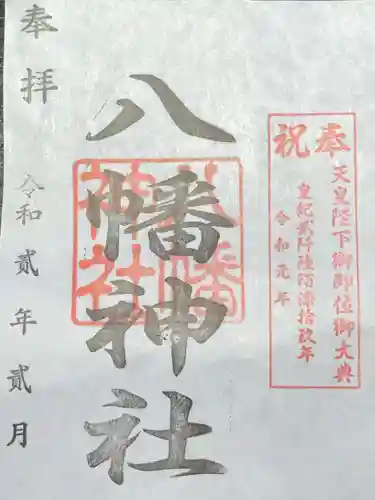 奉祝
天皇陛下御即位御大典
皇紀貳阡陸佰漆拾玖年
令和元年
八幡神社
八幡
神社
奉拝
令和貳年貳月